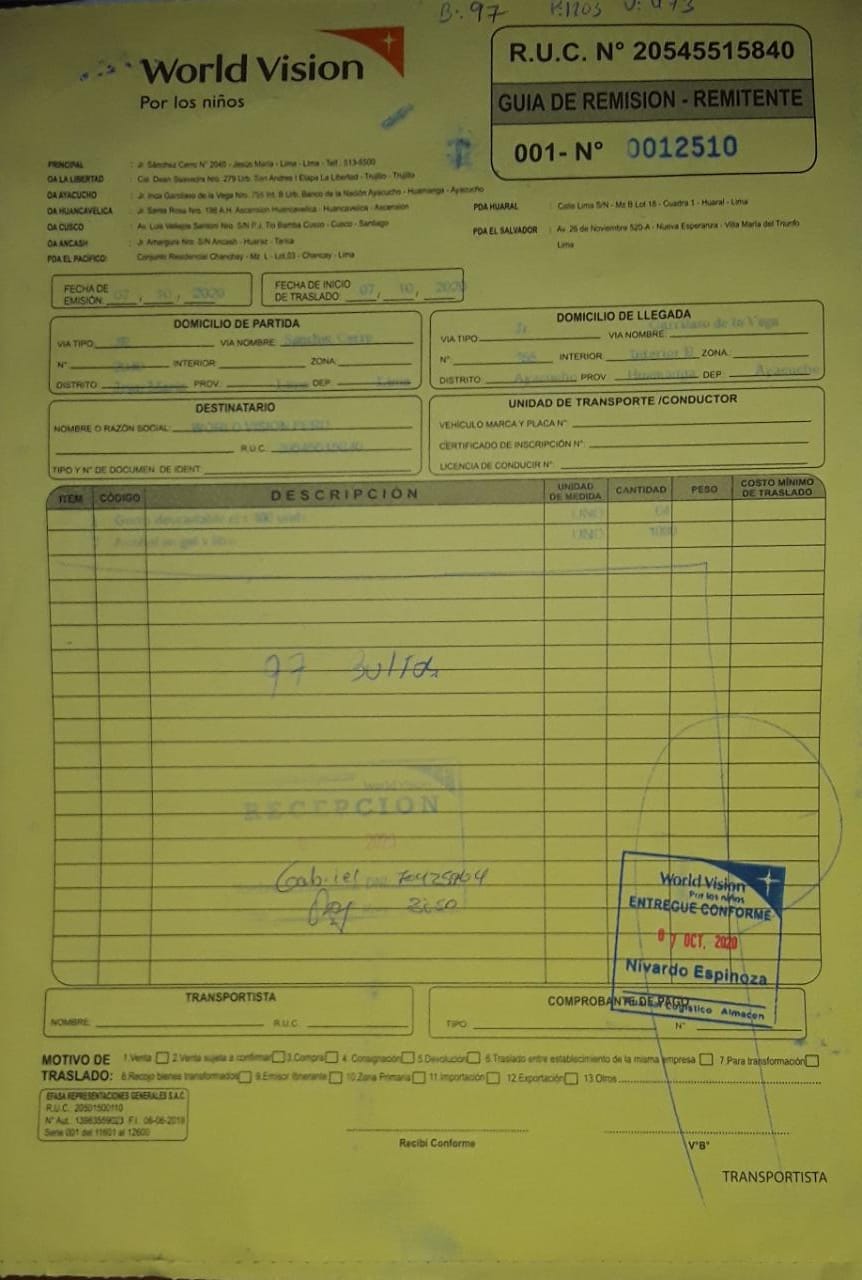 B. 97
World Vision
Por los niños
R.U.C. N° 20545515840
GUIA DE REMISION - REMITENTE
001- N° 0012510
PRINCIPAL : Jr. Sánchez Cerro N° 2040 - Jesús María - Lima - Lima - Telf.: 513-6500
OA LA LIBERTAD : Cal. Dean Saavedra Nro. 279 Urb. San Andres I Etapa La Libertad - Trujillo - Trujillo
OA AYACUCHO : Jr. Inca Garcilaso de la Vega Nro. 755 Int. B Urb. Banco de la Nación Ayacucho - Huamanga - Ayacucho
OA HUANCAVELICA : Jr. Santa Rosa Nro. 198 A.H. Ascension Huancavelica - Huancavelica - Ascensión
OA CUSCO : Av. Luis Vallejos Santoni Nro. S/N P.J. Tio Bamba Cusco - Cusco - Santiago
OA ANCASH : Jr. Amargura Nro. S/N Ancash - Huaraz - Tarica
PDA EL PACÍFICO: Conjunto Residencial Chanchay - Mz. L - Lot.03 - Chancay - Lima
PDA HUARAL : Calle Lima S/N - Mz B Lot 18 - Cuadra 1 - Huaral - Lima
PDA EL SALVADOR : Av. 26 de Noviembre 520-A - Nueva Esperanza - Villa María del Triunfo
Lima
FECHA DE
EMISIÓN: 07 / 10 / 2020
FECHA DE INICIO
DE TRASLADO: 07 / 10 / 2020
DOMICILIO DE PARTIDA
VIA TIPO: VIA NOMBRE: Sanchez Cerro
N° 2040 INTERIOR ZONA:
DISTRITO Jesus Maria PROV: Lima DEP: Lima
DOMICILIO DE LLEGADA
VIA TIPO: Jr VIA NOMBRE: Garcilaso de la Vega
N°: 755 INTERIOR Interior B ZONA:
DISTRITO Ayacucho PROV Huamanga DEP: Ayacucho
DESTINATARIO
NOMBRE O RAZÓN SOCIAL: WORLD VISION PERU
R.U.C. 20545515840
TIPO Y N° DE DOCUMEN. DE IDENT:
UNIDAD DE TRANSPORTE /CONDUCTOR
VEHÍCULO MARCA Y PLACA N°:
CERTIFICADO DE INSCRIPCIÓN N°:
LICENCIA DE CONDUCIR N°:
ITEM CÓDIGO DESCRIPCIÓN UNIDAD DE MEDIDA CANTIDAD PESO COSTO MÍNIMO DE TRASLADO
UND
Alcohol en gel x litro UND
97 Bultos
World Vision
RECEPCION
2020
Gabriel
World Vision
Por los niños
ENTREGUE CONFORME
07 OCT. 2020
Nivardo Espinoza
Logístico Almacen
TRANSPORTISTA
NOMBRE: R.U.C.
COMPROBANTE DE PAGO
TIPO: N°
MOTIVO DE TRASLADO: 1.Venta 2.Venta sujeta a confirmar 3.Compra 4. Consignación 5.Devolución 6.Traslado entre establecimiento de la misma empresa 7.Para transformación
8.Recojo bienes transformados 9.Emisor Itinerante 10.Zona Primaria 11.Importación 12.Exportación 13.Otros
EFASA REPRESENTACIONES GENERALES S.A.C
R.U.C. 20501500110
N° Aut.: 13983559023 F.I. 06-06-2019
Serie 001 del 11601 al 12600
Recibí Conforme
V°B°
TRANSPORTISTA